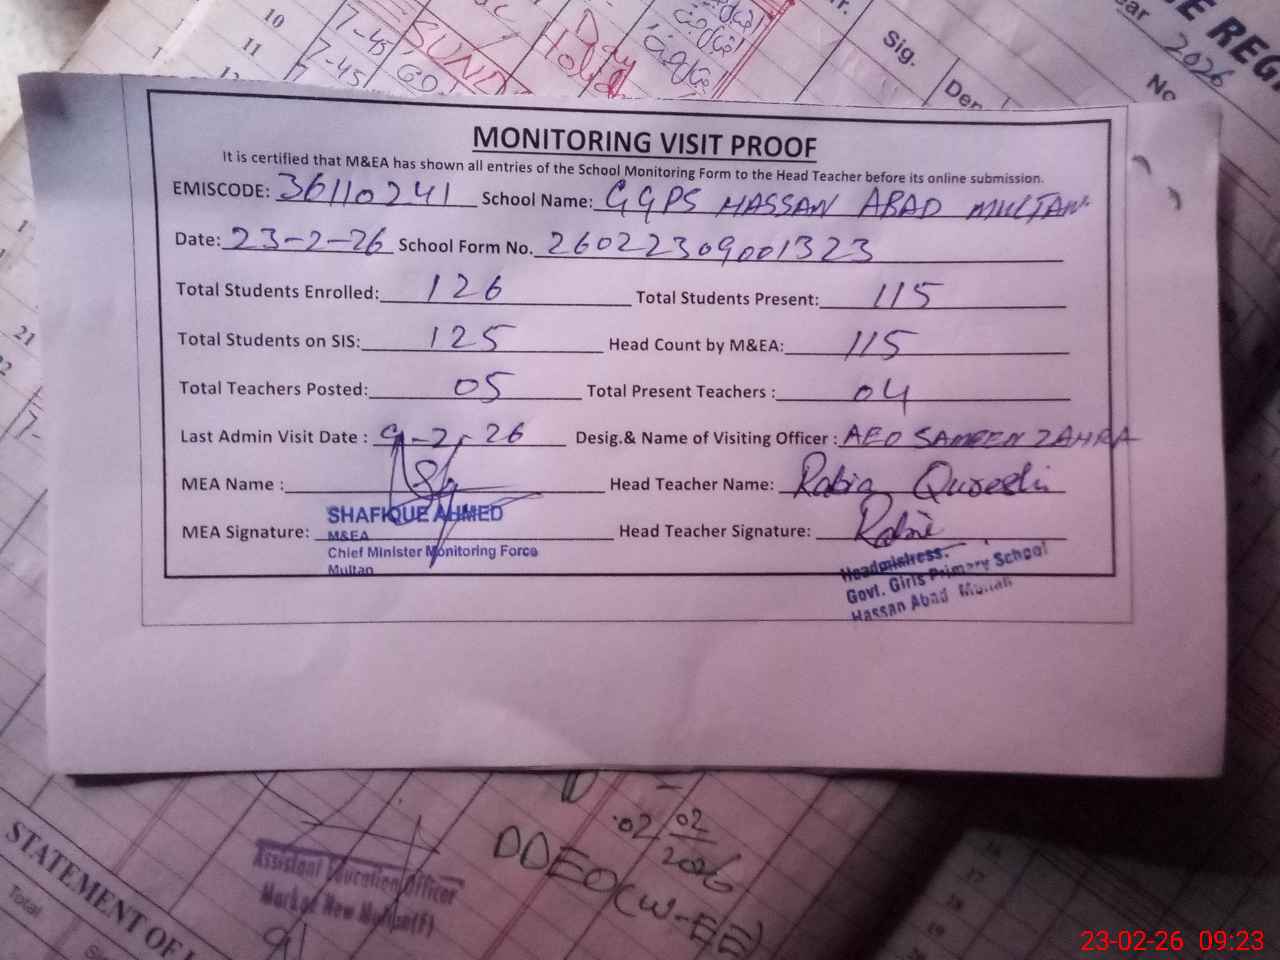 10
11
7-45
7-45
SUND
Day
Sig.
2026
No
MONITORING VISIT PROOF
It is certified that M&EA has shown all entries of the School Monitoring Form to the Head Teacher before its online submission.
EMISCODE: 36110241 School Name: GGPS HASSAN ABAD MULTAN
Date: 23-2-26 School Form No. 26022309001323
Total Students Enrolled: 126 Total Students Present: 115
Total Students on SIS: 125 Head Count by M&EA: 115
Total Teachers Posted: 05 Total Present Teachers : 04
Last Admin Visit Date : 9-2-26 Desig.& Name of Visiting Officer : AEO SAMEEN ZAHRA
MEA Name : Head Teacher Name: Rabia Qureshi
MEA Signature: Head Teacher Signature: Rabia
SHAFIQUE AHMED
M&EA
Chief Minister Monitoring Force
Multan
Headmistress.
Govt. Girls Primary School
Hassan Abad Multan
21
02 02
2026
DDEO(W-EE)
Assistant Education Officer
STATEMENT OF
Total
17
18
19
20
23-02-26 09:23